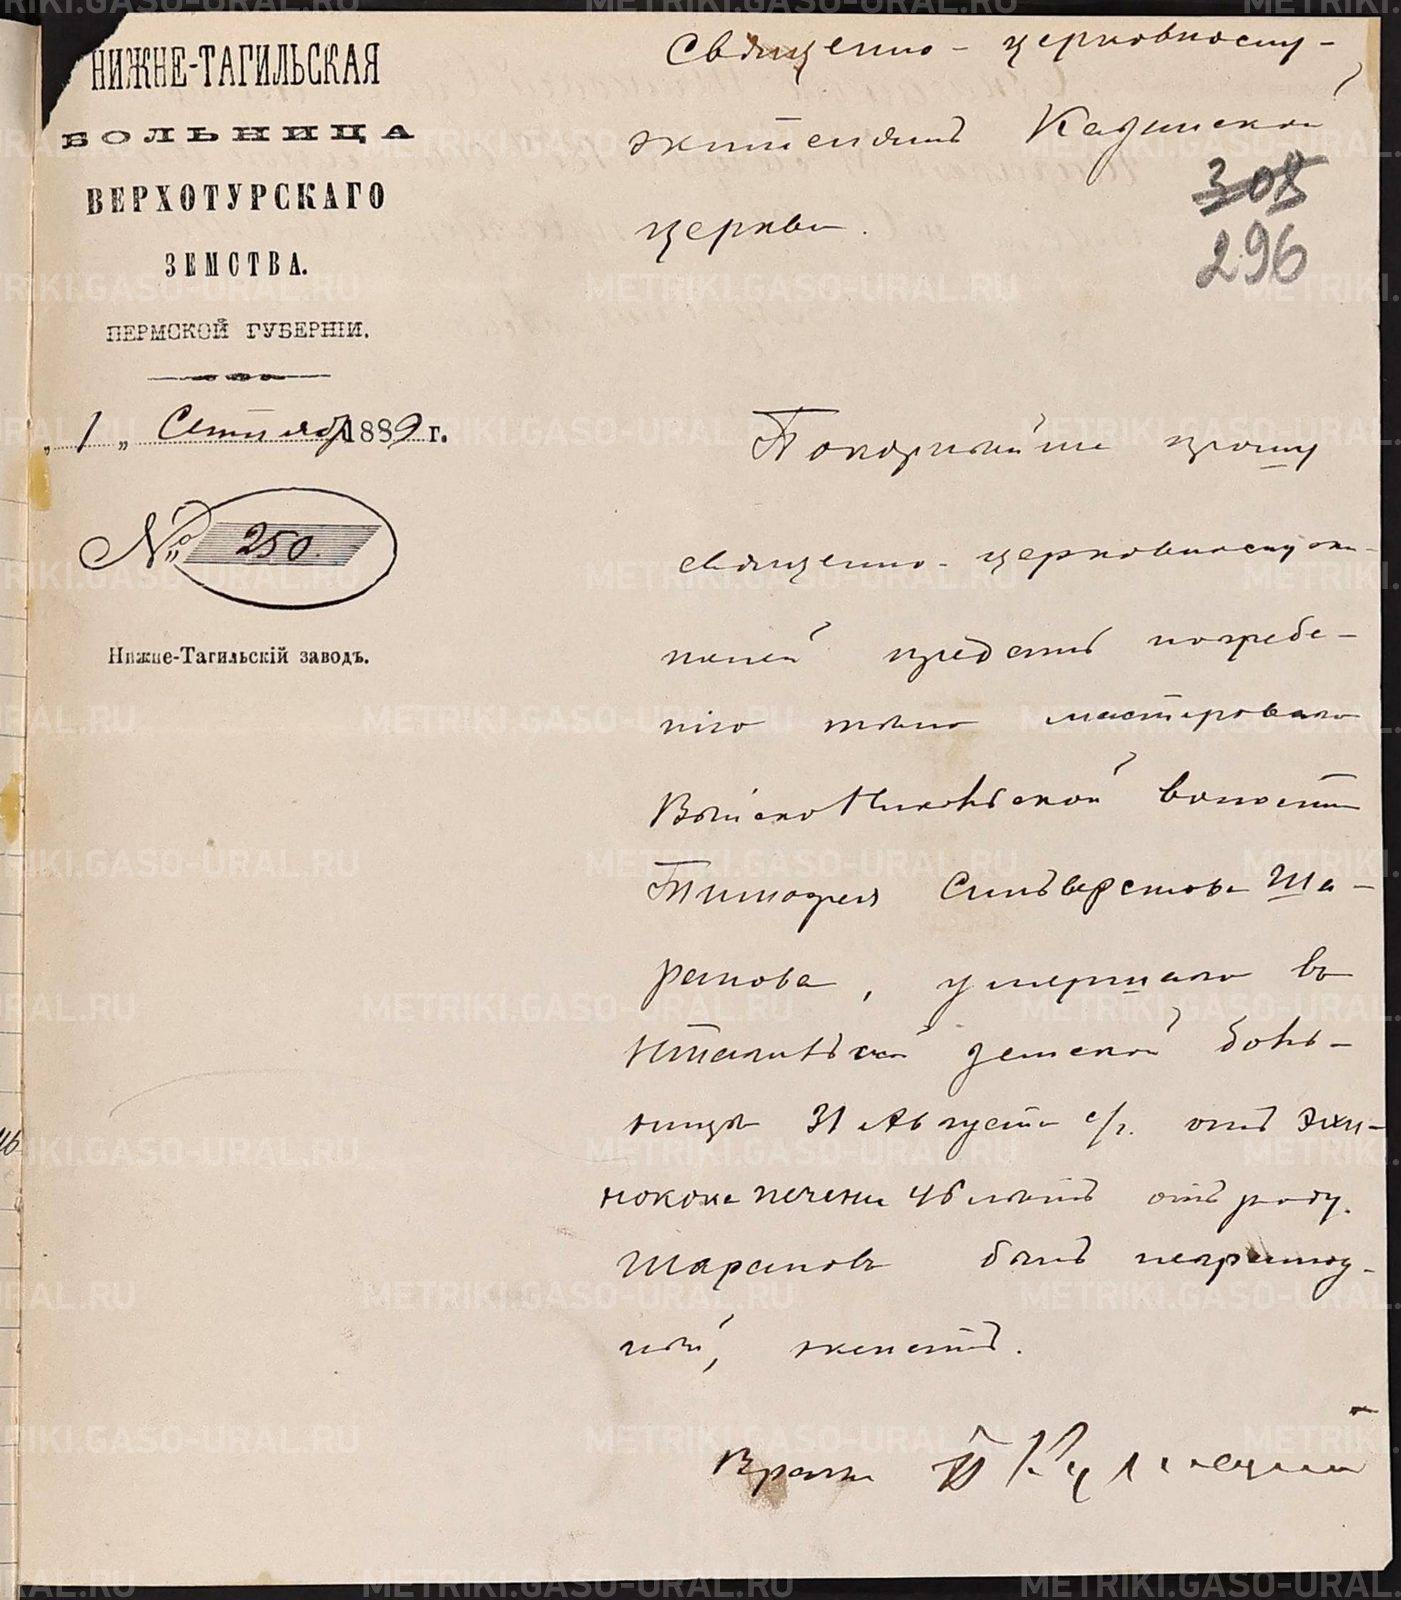 НИЖНЕ-ТАГИЛЬСКАЯ
БОЛЬНИЦА
ВЕРХОТУРСКАГО
ЗЕМСТВА.
ПЕРМСКОЙ ГУБЕРНІИ.
„ 1 „ Сентября 1889 г.
№ 250.
Нижне-Тагильскій заводъ.
Священно-церковнослу-
жителямъ Казанской
церкви.
308
296
Покорнѣйше прошу
священно-церковнослужи-
телей предать погребе-
нію тѣло мастероваго
Выйско Никольской волости
Тимофея Сильверстова Ша-
рапова, умершаго въ
НТагильской земской боль-
ницѣ 31 Августа с/г. отъ Эхи-
нокока печени 46 лѣтъ отъ роду.
Шараповъ былъ непримод-
ной, женатъ.
Врачъ
METRIKI.GASO-URAL.RU